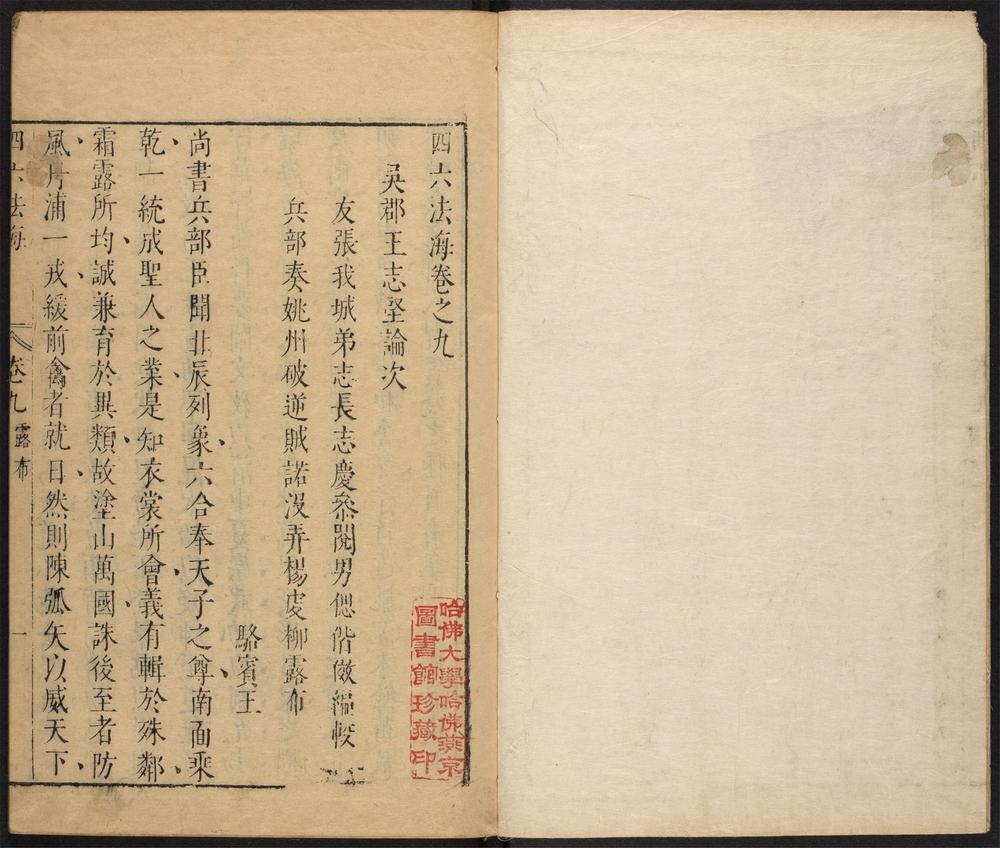 四六法海卷之九
吳郡王志堅論次
友張我城弟志長志慶叅閱男偲偕儆編較
兵部奏姚州破逆賊諾沒弄楊虔柳露布
駱賓王
尚書兵部臣聞北辰列象六合奉天子之尊南面乘
乾一統成聖人之業是知衣裳所會義有輯於殊鄰
霜露所均誠兼育於異類故塗山萬國誅後至者防
風丹浦一戎緩前禽者就日然則陳弧矢以威天下
四六法海
卷九
露布
一
哈佛大學哈佛燕京
圖書館珍藏印